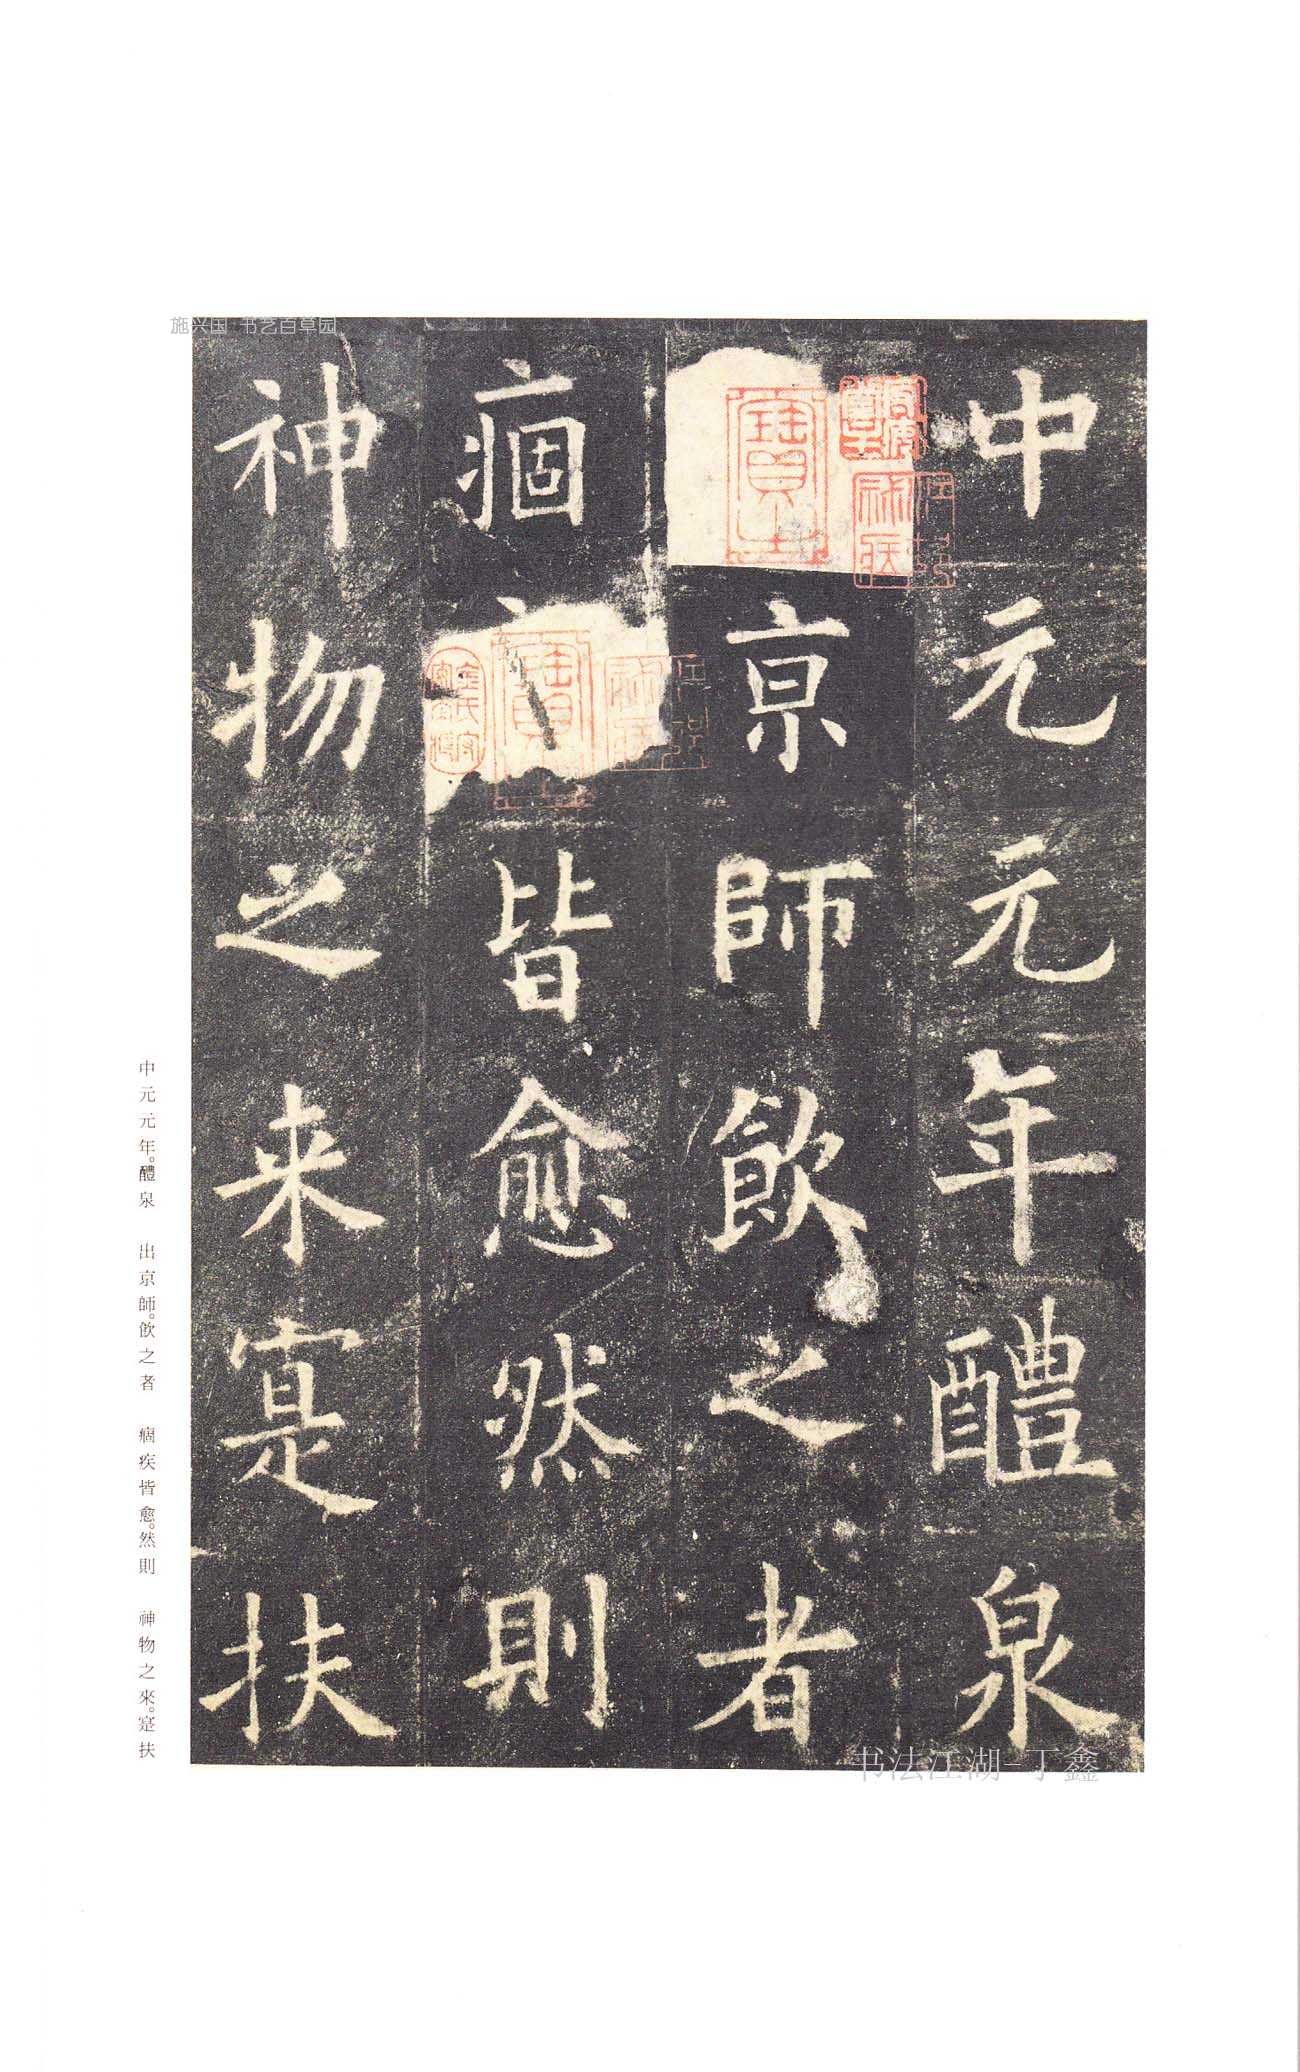 施兴国 书艺百草园
中元元年醴泉
京師飲之者
痼皆愈然則
神物之来寔扶
中元元年。醴泉 出京師。飲之者 痼疾皆愈。然則 神物之來。寔扶
书法江湖-丁鑫